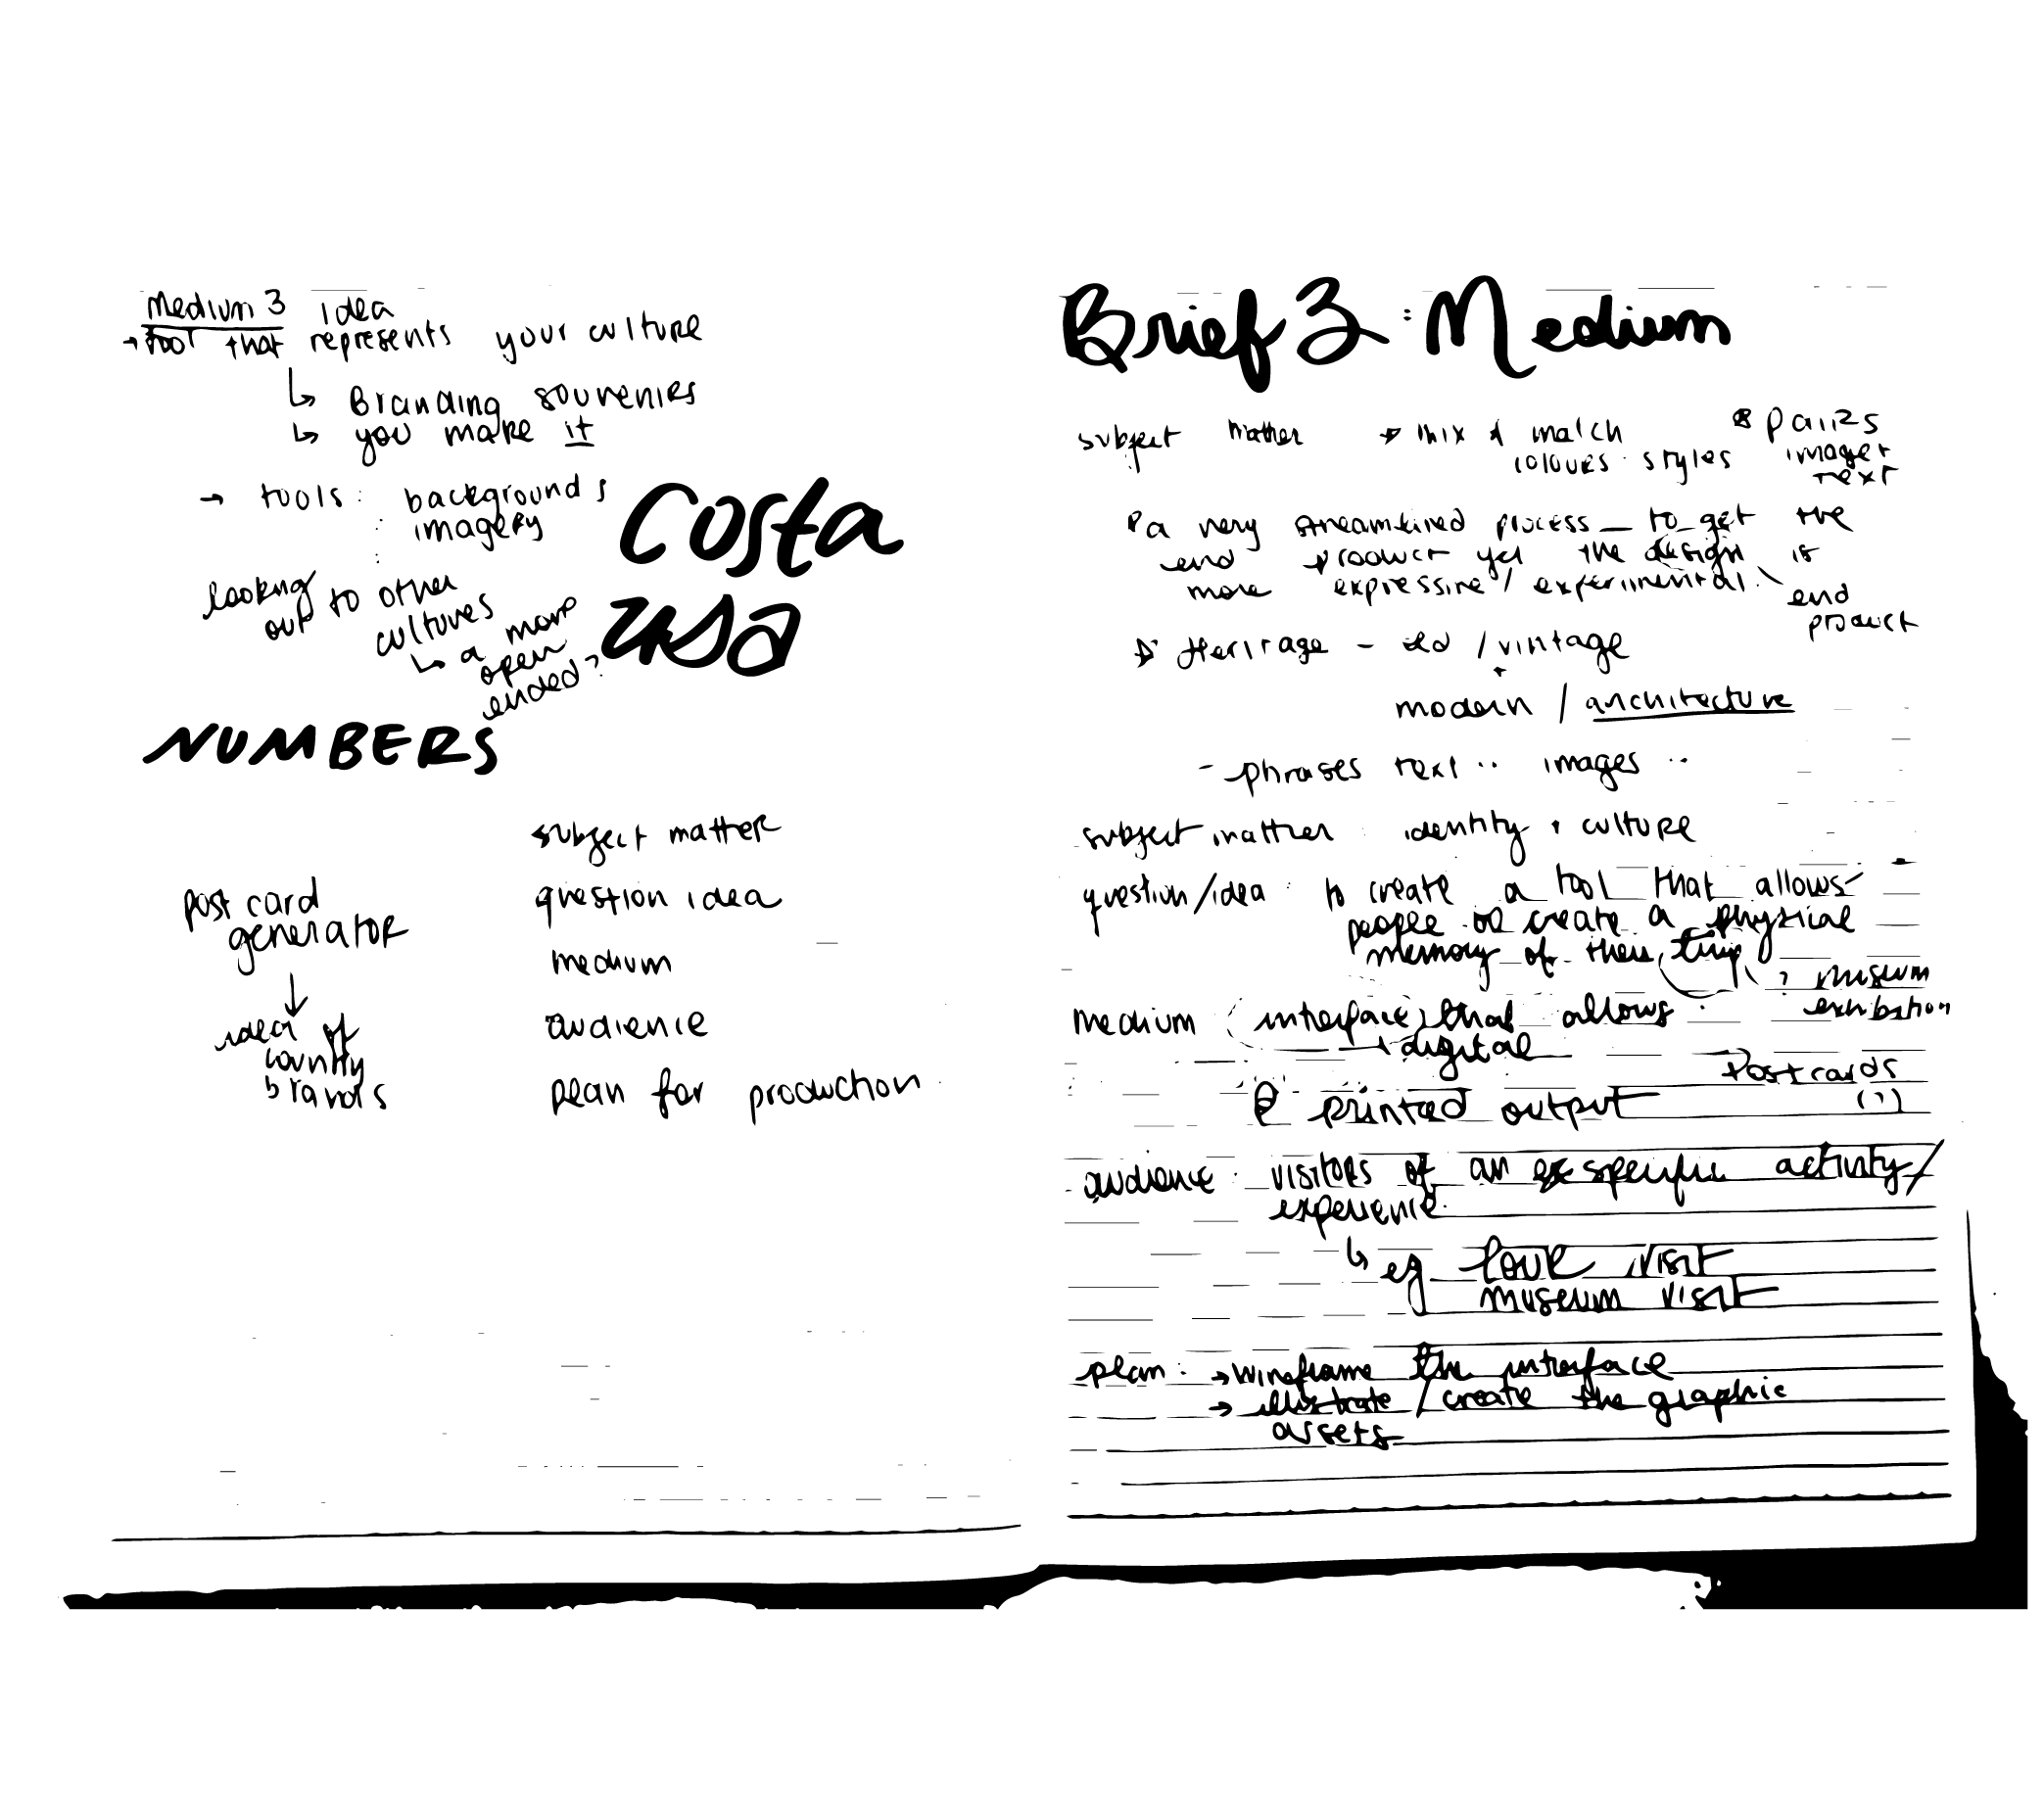 Medium 3 idea
→ tool that represents your culture
↳ Branding souvenies
↳ you make it
→ tools: backgrounds
: imagery
:
looking
out to other
cultures
↳ a more
open
ended?
Costa
usa
NUMBERS
subject matter
post card
generator
question idea
medium
↓
idea of
country
brands
audience
plan for production
Brief 3: Medium
subject matter → mix & match
colours · styles
Paiizs
image +
text
a very streamlined process to get the
end product yet the design is
more expressive / experimental.
end
product
Heritage - old / vintage
+
modern / architecture
- phrases text .. images ..
subject matter : identity · culture
question/idea : to create a tool that allows
people to create a physical
memory of their trip
? museum
exhibition
medium (interface) that allows
digital
Postcards
(?)
printed output
audience : visitors of an specific activity/
experience.
↳ eg tour visit
museum visit
plan: → wireframe the interface
→ illustrate / create the graphic
assets